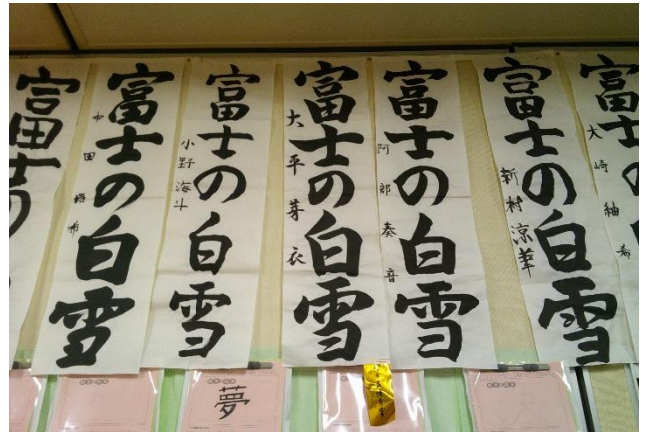 富士の
富士の白雪
富士の白雪
小野海斗
富士の白雪
大平芽衣
富士の白雪
奏音
富士の白雪
新村涼華
富士の
大崎紬希
夢